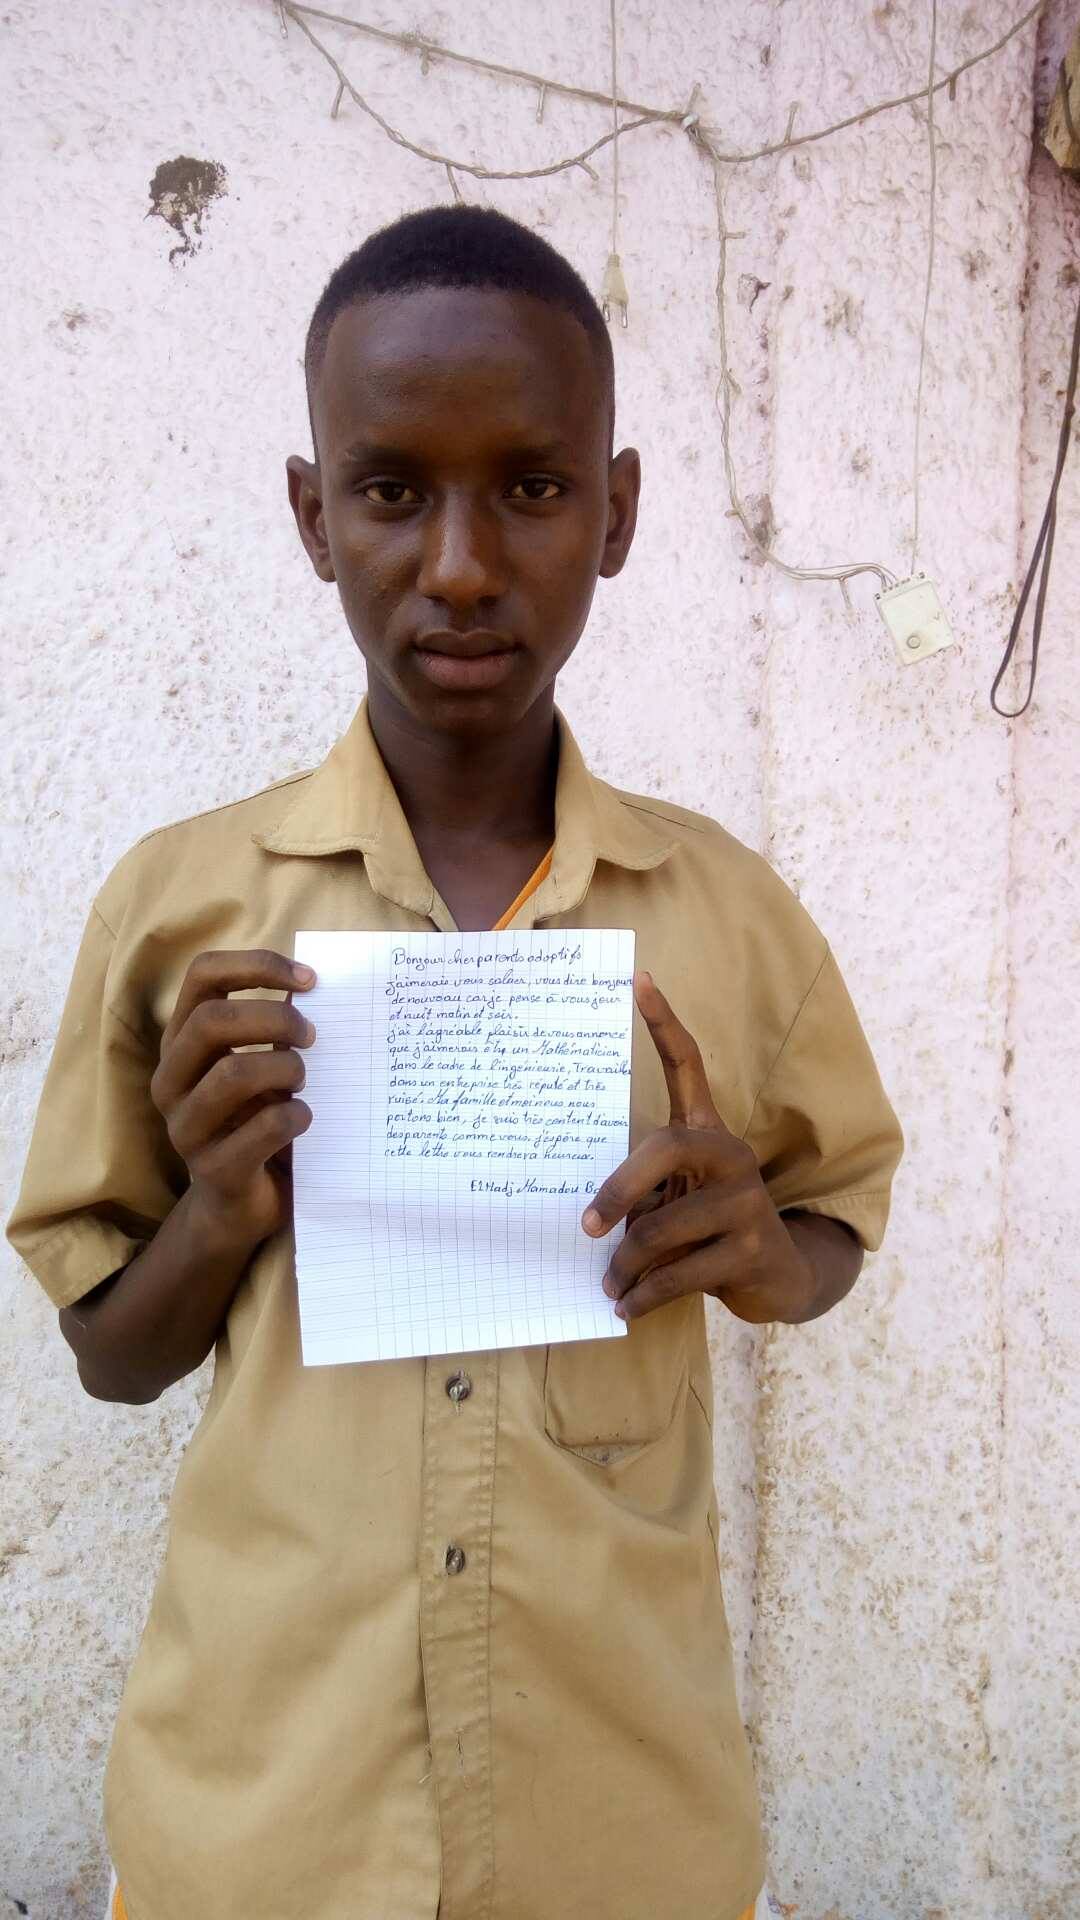 Bonjour chers parents adoptifs
j'aimerais vous saluer, vous dire bonjour
de nouveau car je pense à vous jour
et nuit matin et soir.
j'ai l'agréable plaisir de vous annoncé
que j'aimerais être un Mathématicien
dans le cadre de l'ingénieurie, Travailler
dans un entreprise très réputé et très
rusé. Ma famille et moi nous nous
portons bien, je suis très content d'avoir
des parents comme vous. j'éspère que
cette lettre vous rendrera heureux.
El Hadj Mamadou